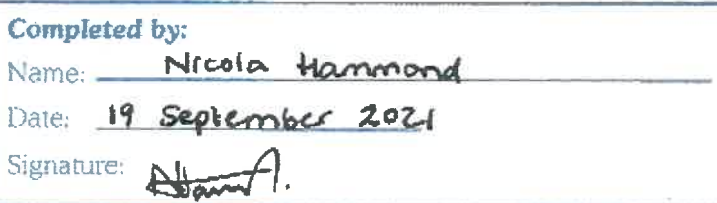 Completed by:
Name: Nicola Hammond
Date: 19 September 2021
Signature: